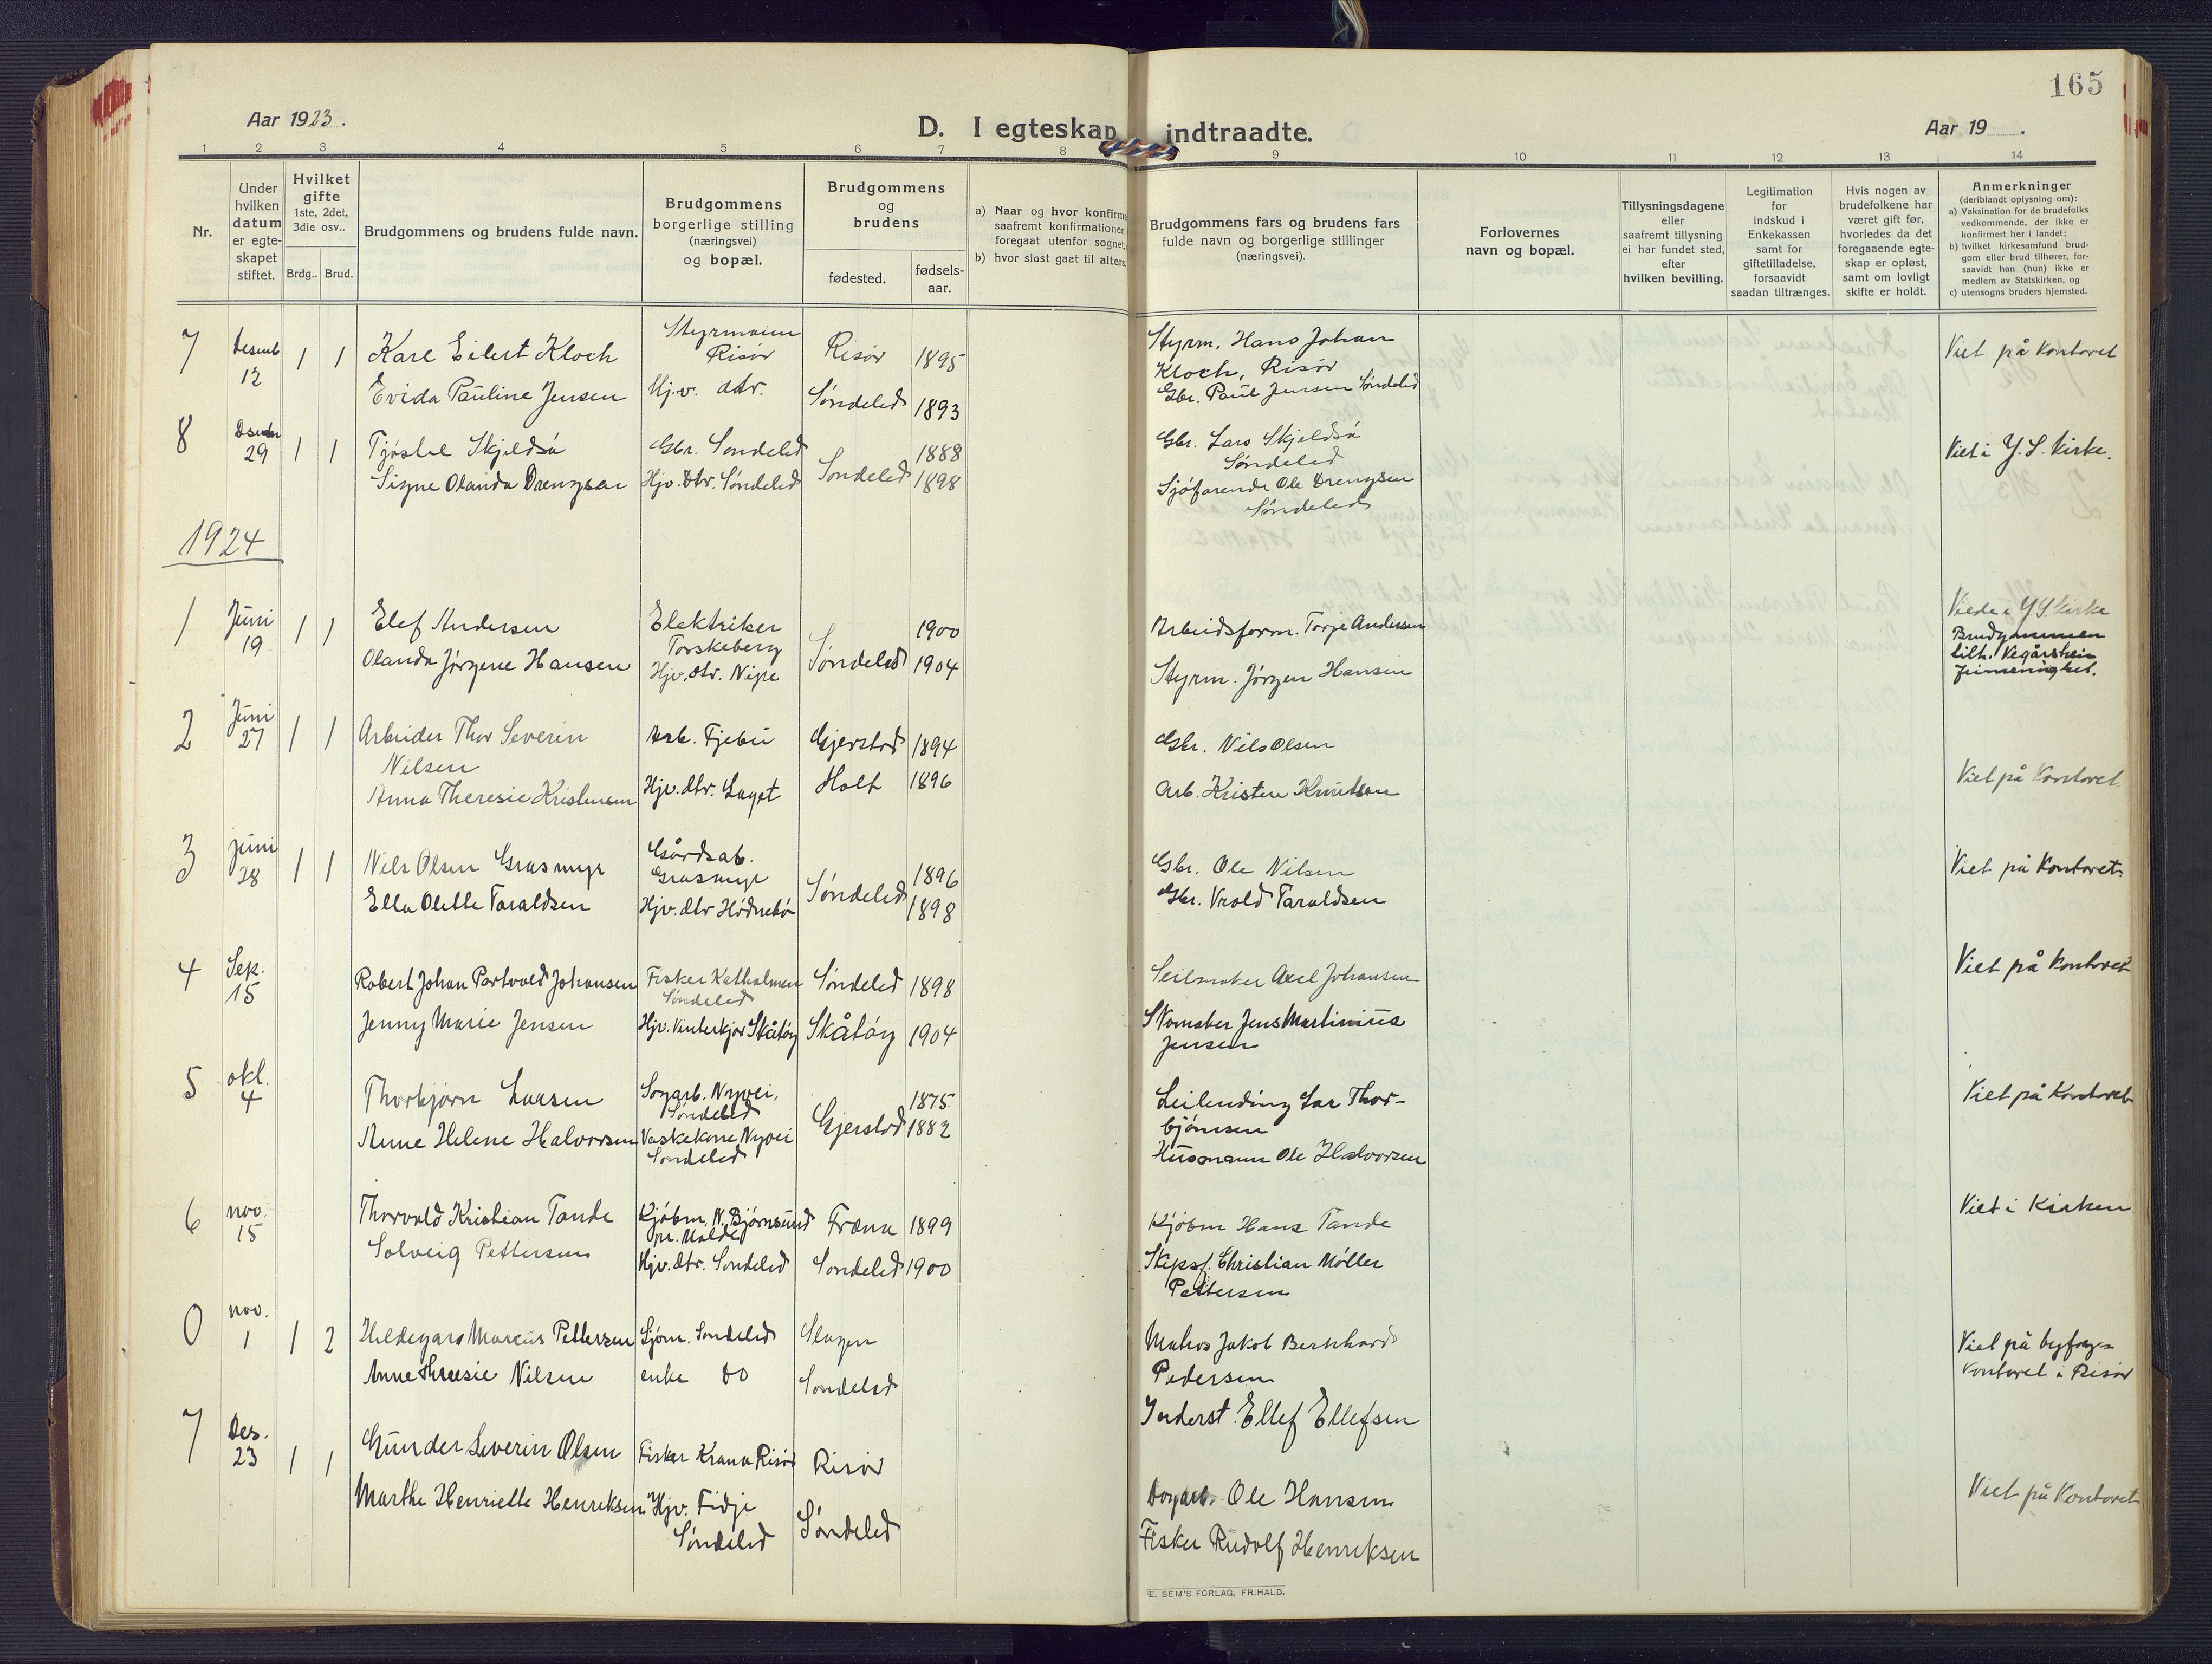 165
Aar 1923.
D. I egteskap indtraadte.
Aar 19 .
1 2 3 4 5 6 7 8 9 10 11 12 13 14
Nr.
Under hvilken datum er egte-skapet stiftet.
Hvilket gifte 1ste, 2det, 3die osv..
Brdg.. Brud.
Brudgommens og brudens fulde navn.
Brudgommens borgerlige stilling (næringsvei) og bopæl.
Brudgommens og brudens
fødested.
fødsels-aar.
a) Naar og hvor konfirme
saafremt konfirmationen
foregaat utenfor sognet,
b) hvor sidst gaat til alters.
Brudgommens fars og brudens fars
fulde navn og borgerlige stillinger
(næringsvei).
Forlovernes
navn og bopæl.
Tillysningsdagene
eller
saafremt tillysning
ei har fundet sted,
efter
hvilken bevilling.
Legitimation
for
indskud i
Enkekassen
samt for
giftetilladelse,
forsaavidt
saadan tiltrænges.
Hvis nogen av
brudefolkene har
været gift før,
hvorledes da det
foregaaende egte-
skap er opløst,
samt om lovligt
skifte er holdt.
Anmerkninger
(deriblandt oplysning om):
a) Vaksination for de brudefolks
vedkommende, der ikke er
konfirmert her i landet;
b) hvilket kirkesamfund brud-
gom eller brud tilhører, for-
saavidt han (hun) ikke er
medlem av Statskirken, og
c) utensogns bruders hjemsted.
7 Desemb 12 1 1 Karl Eilert Kloch Styrmann Risør Risør 1895 Styrm. Hans Johan Kloch, Risør Viet på Kontoret
Evida Pauline Jensen Hj.v. dtr. Søndeled 1893 Gbr. Paul Jensen Søndeled
8 29 1 1 Tjøstel Skjeldså Gbr. Søndeled Søndeled 1888 Gbr. Lars Skjeldså Søndeled Viet i Y.S. Kirke.
Signe Olanda Drengsen Hjv. Dtr. Søndeled 1898 Sjøfarende Ole Drengsen Søndeled
1924
1 Juni 19 1 1 Elef Andersen Elektriker Torskeberg Søndeled 1900 Arbeidsform. Torje Andersen Viede i Y.S. Kirke
Brudgommen
tilh. Vegårshei
frimenighet.
Olanda Jørgine Hansen Hjv. dtr. Nipe 1904 Styrm. Jørgen Hansen
2 Juni 27 1 1 Arbeider Thor Severin Nilsen Arb. Fjebu Gjerstad 1894 Gbr. Nils Olsen Viet på Kontoret
Anna Theresie Kristensen Hjv. dtr. Laget Holt 1896 Arb. Kristen Knutsen
3 juni 28 1 1 Nils Olsen Grasmyr Gårdsab. Grasmyr Søndeled 1896 Gbr. Ole Nilsen Viet på Kontoret.
Ella Olette Taraldsen Hjv. dtr Hødnebø 1898 Gbr. Vrold Taraldsen
4 Sep. 15 Robert Johan Partvald Johansen Fisker Ketholmen Søndeled Søndeled 1898 Seilmaker Axel Johansen Viet på Kontoret
Jenny Marie Jensen Hjv. Vinterkjør Skåtøy Skåtøy 1904 Skomaker Jens Martinius Jensen
5 okt. 4 Thorbjørn Larsen Nyvei, Søndeled Gjerstad 1875 Leilending Lar Thor-
bjørnsen Viet på Kontoret
Anne Helene Halvorsen Vaskekone Nyvei Søndeled 1882 Husmann Ole Halvorsen
6 nov. 15 Thorvald Kristian Tande Kjøbm. N. Bjørnsund pr. Molde Fræna 1899 Kjøbm Hans Tande Viet i Kirken
Solveig Pettersen Hjv. dtr. Søndeled Søndeled 1900 Skipsf. Christian Møller Pettersen
0 nov. 1 1 2 Hildegard Marcus Pettersen Sjøm. Søndeled Slagen Matros Jakob Bernhard Pedersen Viet på byfog-
kontoret i Risør
Anne Theresie Nilsen enke do Søndeled Inderst Ellef Ellefsen
7 Des. 23 1 1 Gunder Severin Olsen Fisker Krana Risør Risør Ole Hansen Viet på Kontoret
Marthe Henriette Henriksen Hjv. Fidje Søndeled Søndeled Fisker Rudolf Henriksen
E. SEM'S FORLAG, FR.HALD.